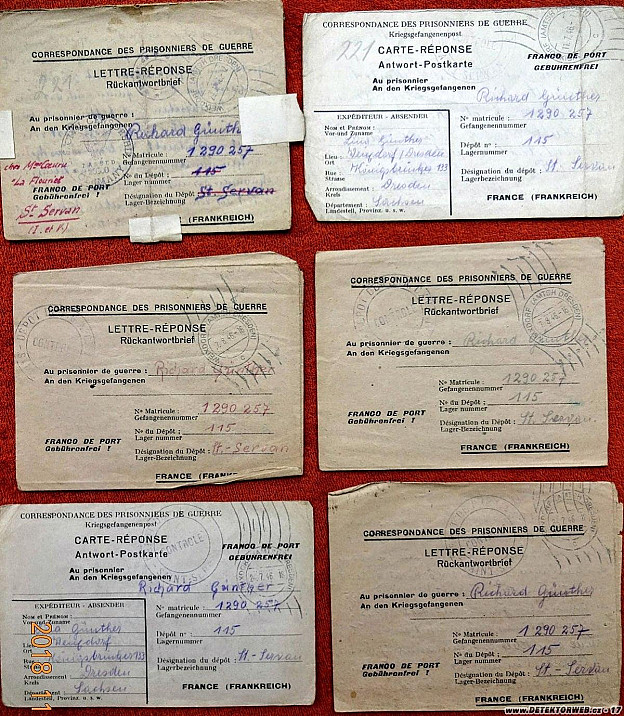 CORRESPONDANCE DES PRISONNIERS DE GUERRE
LETTRE-RÉPONSE
Rückantwortbrief
Au prisonnier de guerre :
An den Kriegsgefangenen
Richard Günther
No Matricule : 1290 257
Gefangenennummer
No du Dépôt : 115
Lager nummer
Désignation du Dépôt : St. Servan
Lager-Bezeichnung
FRANCO DE PORT
Gebührenfrei !
St Servan
(I. et V.)
FRANCE (FRANKREICH)
CORRESPONDANCE DES PRISONNIERS DE GUERRE
Kriegsgefangenenpost
221
CARTE-RÉPONSE
Antwort-Postkarte
FRANCO DE PORT
GEBÜHRENFREI
Au prisonnier
An den Kriegsgefangenen
Richard Günther
EXPÉDITEUR - ABSENDER
Nom et Prénom :
Vor-und Zuname
Günther
Lieu :
Ort
Weixdorf / Dresden
Rue :
Strasse
Königsbrücker 133
Arrondissement :
Kreis
Dresden
Département :
Sachsen
Landesteil, Provinz. u. s. w.
No matricule : 1290 257
Gefangenennummer
Dépôt no : 115
Lagernummer
Désignation du dépôt : St. Servan
Lagerbezeichnung
FRANCE (FRANKREICH)
CORRESPONDANCE DES PRISONNIERS DE GUERRE
LETTRE-RÉPONSE
Rückantwortbrief
Au prisonnier de guerre : Richard Günther
An den Kriegsgefangenen
No Matricule : 1290 257
Gefangenennummer
No du Dépôt : 115
Lager nummer
FRANCO DE PORT
Gebührenfrei !
Désignation du Dépôt : St.-Servan
Lager-Bezeichnung
FRANCE (FRANK
CORRESPONDANCE DES PRISONNIERS DE GUERRE
LETTRE-RÉPONSE
Rückantwortbrief
Au prisonnier de guerre : Richard Günther
An den Kriegsgefangenen
No Matricule : 1290 257
Gefangenennummer
No du Dépôt : 115
Lager nummer
FRANCO DE PORT
Gebührenfrei !
Désignation du Dépôt : St Servan
Lager-Bezeichnung
FRANCE (FRANKREICH)
CORRESPONDANCE DES PRISONNIERS DE GUERRE
Kriegsgefangenenpost
CARTE-RÉPONSE
Antwort-Postkarte
CONTROLE
FRANCO DE PORT
GEBÜHRENFREI
Au prisonnier
An den Kriegsgefangenen
Richard Günther
EXPÉDITEUR - ABSENDER
Nom et Prénom :
Vor-und Zuname
Günther
Weixdorf
Königsbrücker 133
Dresden
Département :
Sachsen
Landesteil, Provinz. u. s. w.
No matricule : 1290 257
Gefangenennummer
Dépôt no : 115
Lagernummer
Désignation du dépôt : St.-Servan
Lagerbezeichnung
FRANCE (FRANKREICH)
CORRESPONDANCE DES PRISONNIERS DE GUERRE
LETTRE-RÉPONSE
Rückantwortbrief
Au prisonnier de guerre : Richard Günther
An den Kriegsgefangenen
No Matricule : 1290 257
Gefangenennummer
No du Dépôt : 115
Lager nummer
FRANCO DE PORT
Gebührenfrei !
Désignation du Dépôt : St.-Servan
Lager-Bezeichnung
FRANCE (FRANKREICH)
www.DETEKTORWEB.cz - 17